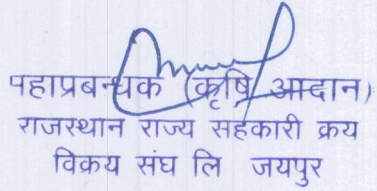 पहाप्रबन्धक (कृषि आदान)
राजस्थान राज्य सहकारी क्रय
विक्रय संघ लि जयपुर